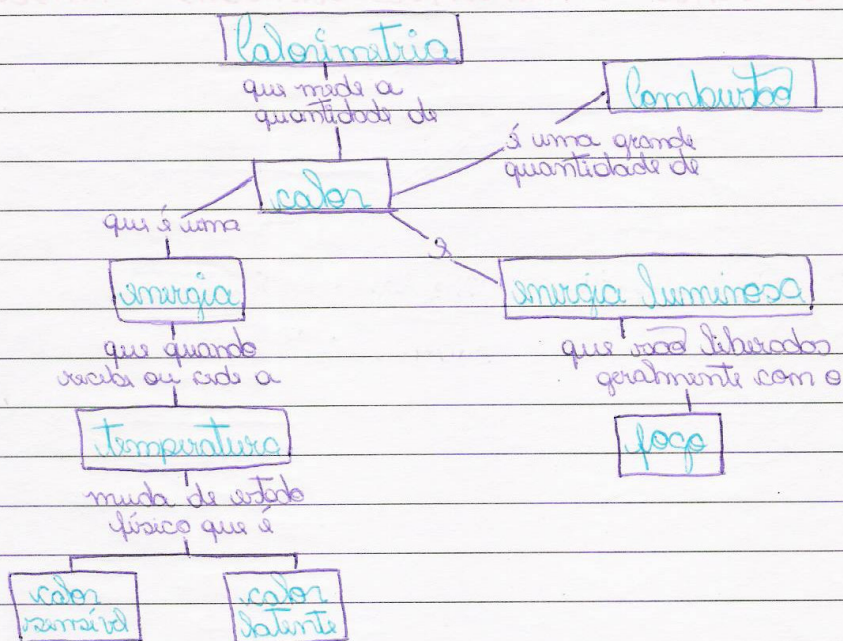 Calorimetria
que mede a
quantidade de
Combustão
é uma grande
quantidade de
calor
que é uma
e
energia
energia luminosa
que quando
recebe ou cede a
que são liberados
geralmente com o
temperatura
fogo
muda de estado
físico que é
calor
sensível
calor
latente